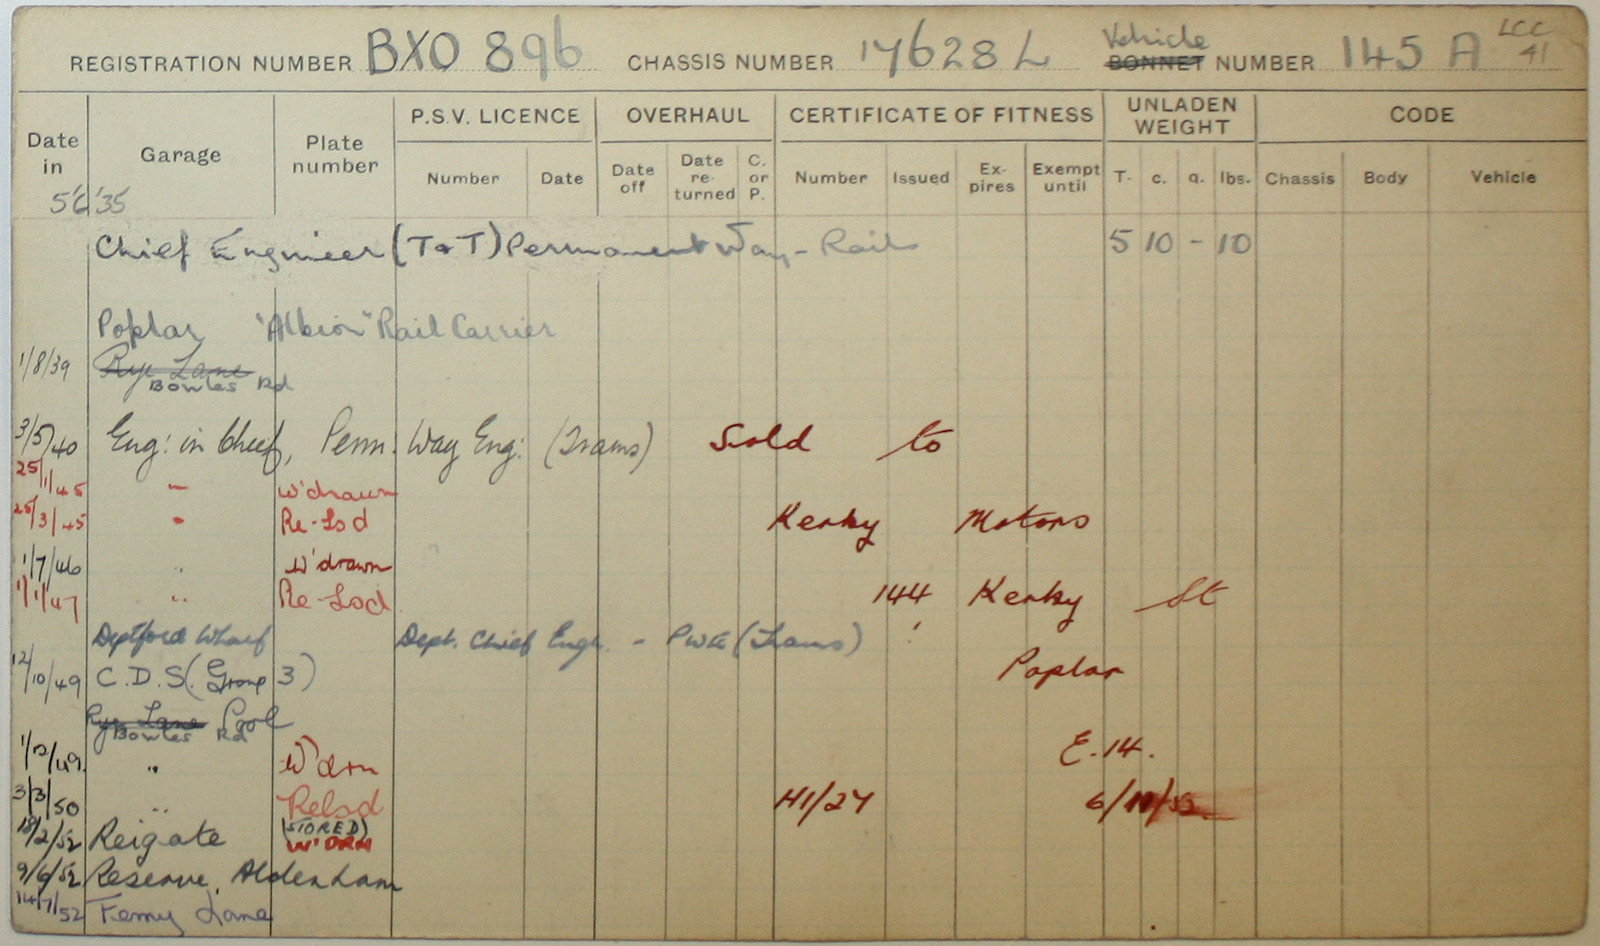 REGISTRATION NUMBER BXO 896 CHASSIS NUMBER 17628 L Vehicle BONNET NUMBER 145 A LCC 41
Date in Garage Plate number P.S.V. LICENCE OVERHAUL CERTIFICATE OF FITNESS UNLADEN WEIGHT CODE
Number Date Date off Date re-turned C. or P. Number Issued Ex-pires Exempt until T. c. q. lbs. Chassis Body Vehicle
5/6/35
Chief Engineer (T & T) Permanent Way - Rails 5 10 - 10
Poplar "Albion" Rail Carrier
1/8/39 Rye Lane
Bowles Rd
3/5/40 Eng: in Chief, Perm. Way Eng: (Trams) Sold to
25/1/45 " W'drawn
25/3/45 " Re-Lsd Kerby Motors
1/7/46 " W'drawn
1/1/47 " Re-Lsd 144 Kerby St
Deptford Wharf Dept. Chief Engr. - PWE (Trams)
12/10/49 C.D.S. (Group 3) Poplar
Rye Lane Pool
Bowles Rd
1/12/49 " W'drn E.14.
3/3/50 " Relsd H1/27
18/2/52 Reigate (STORED) W'DRN
9/6/52 Reserve, Aldenham
14/7/52 Ferry Lane